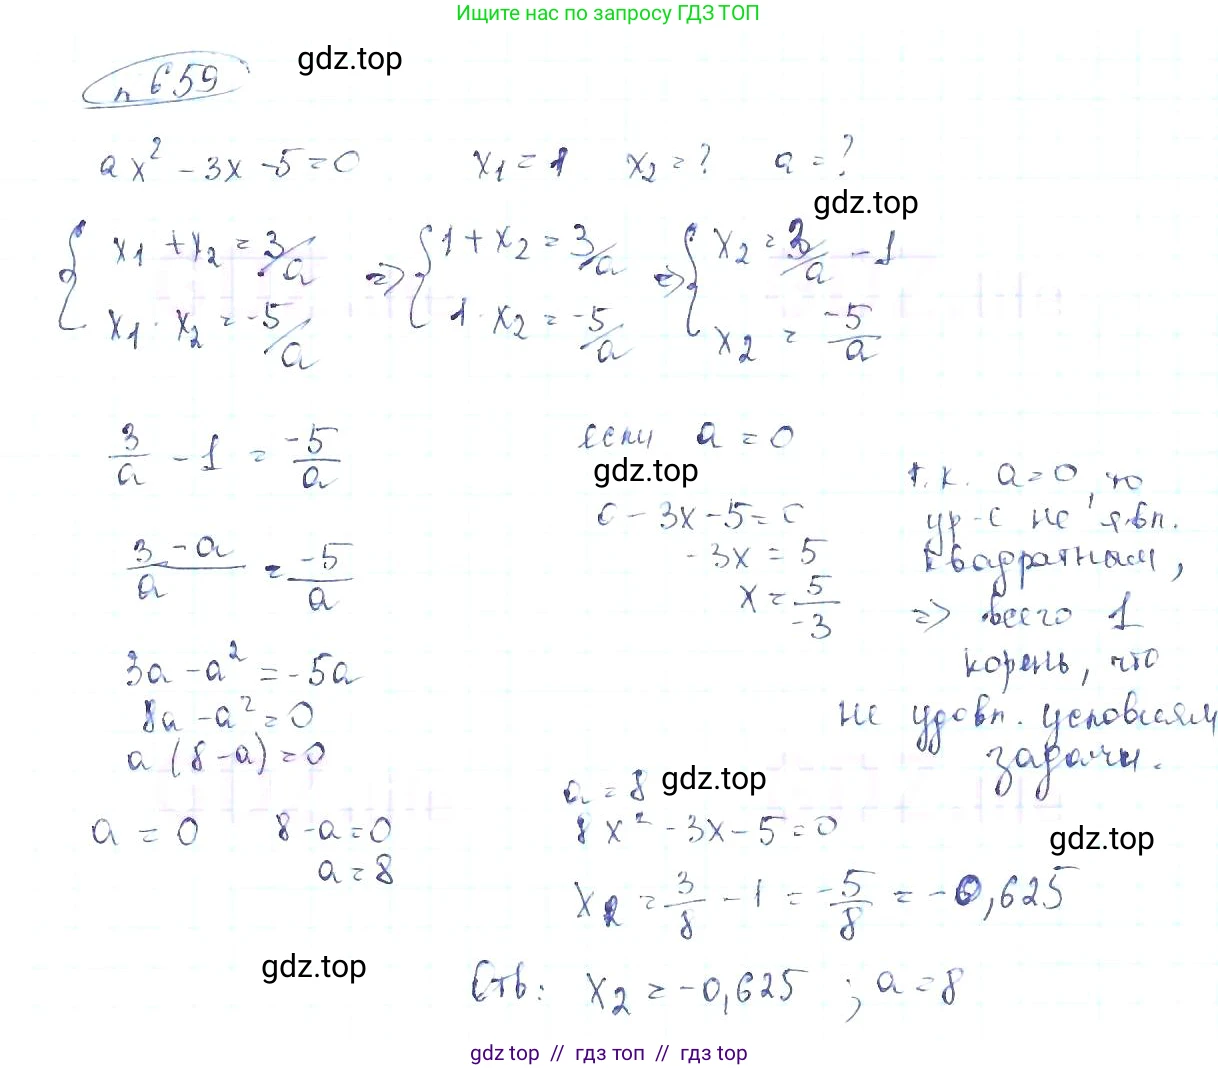 Ищите нас по запросу ГДЗ ТОП
gdz.top
n 659
ax² - 3x - 5 = 0   x₁ = 1   x₂ = ?   a = ?
gdz.top
{ x₁ + x₂ = 3/a => { 1 + x₂ = 3/a => { x₂ = 3/a - 1
x₁ · x₂ = -5/a   1 · x₂ = -5/a   x₂ = -5/a
3/a - 1 = -5/a
(3 - a)/a = -5/a
3a - a² = -5a
8a - a² = 0
a (8 - a) = 0
a = 0   8 - a = 0
a = 8
если a = 0
gdz.top
0 - 3x - 5 = 0
-3x = 5
x = 5/-3
т.к. a = 0, то
ур-е не явл.
квадратным,
=> всего 1
корень, что
не удовл. условиям
задачи.
a = 8
gdz.top
8x² - 3x - 5 = 0
gdz.top
x₂ = 3/8 - 1 = -5/8 = -0,625
gdz.top
Отв: x₂ = -0,625 ; a = 8
gdz top // гдз топ // гдз top